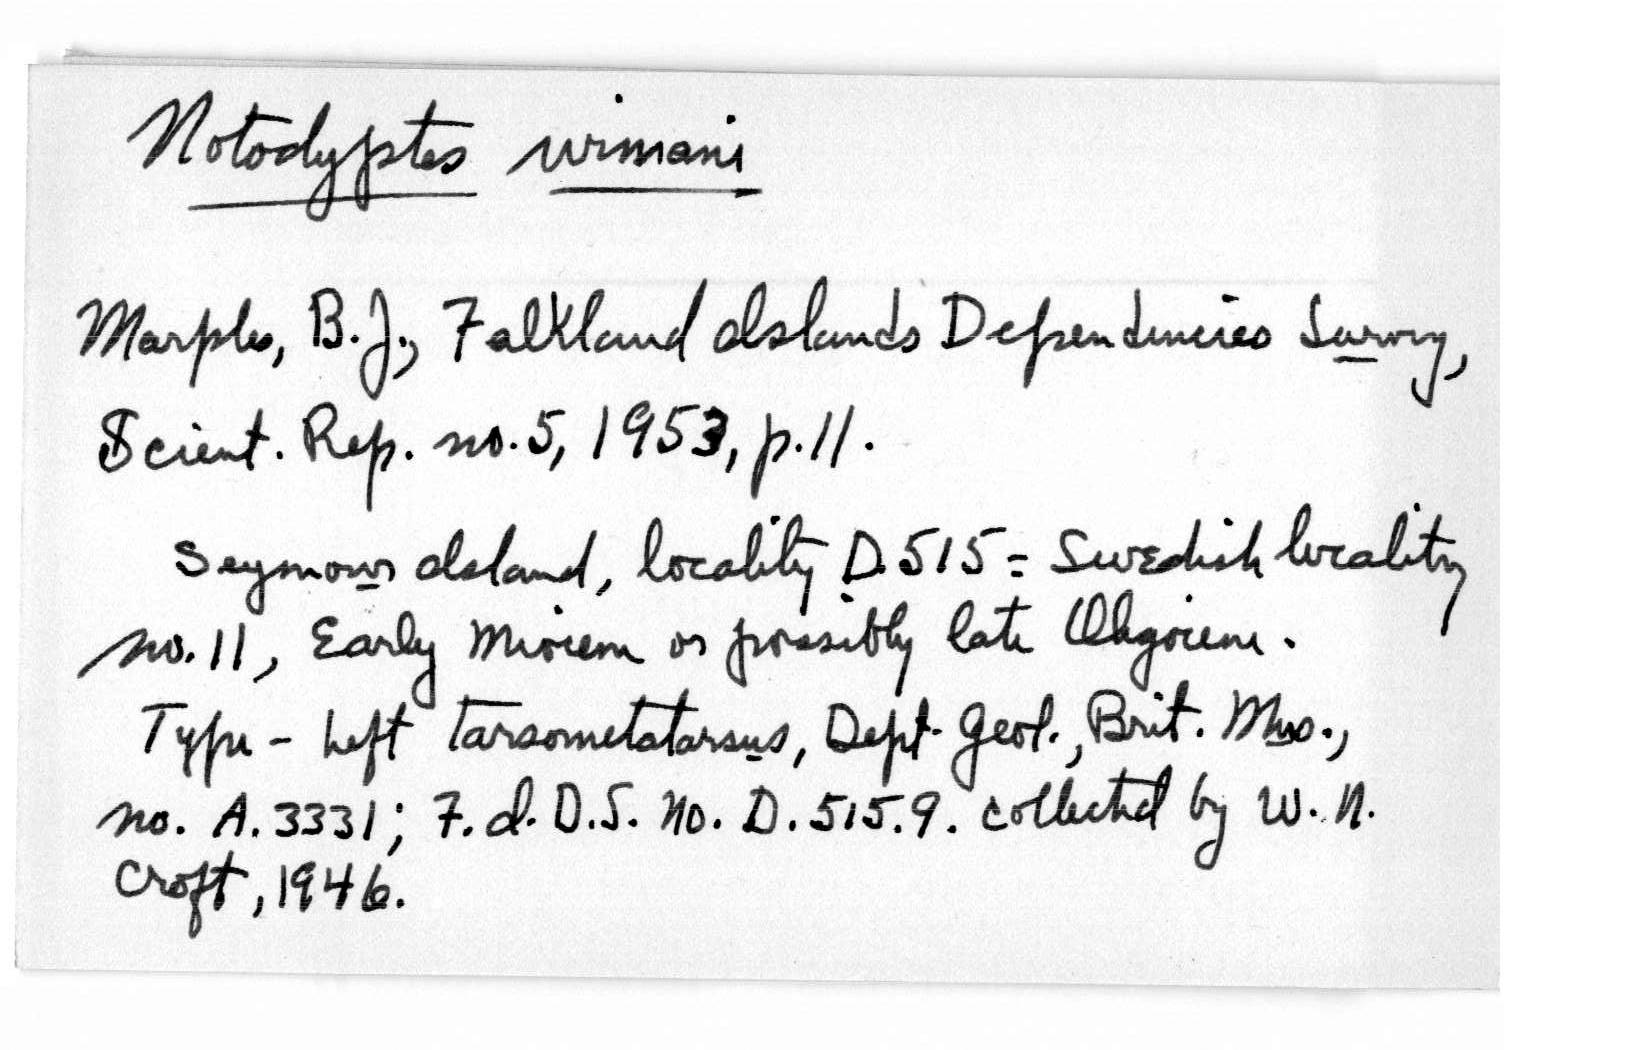 Notodyptes wimani
Marples, B.J., Falkland Islands Dependencies Survey,
Scient. Rep. no. 5, 1953, p. 11.
Seymour Island, locality D.515 = Swedish locality
no. 11, Early Miocene or possibly late Oligocene.
Type - Left tarsometatarsus, Dept. Geol., Brit. Mus.,
no. A.3331; F.I.D.S. no. D.515.9. collected by W.N.
Croft, 1946.